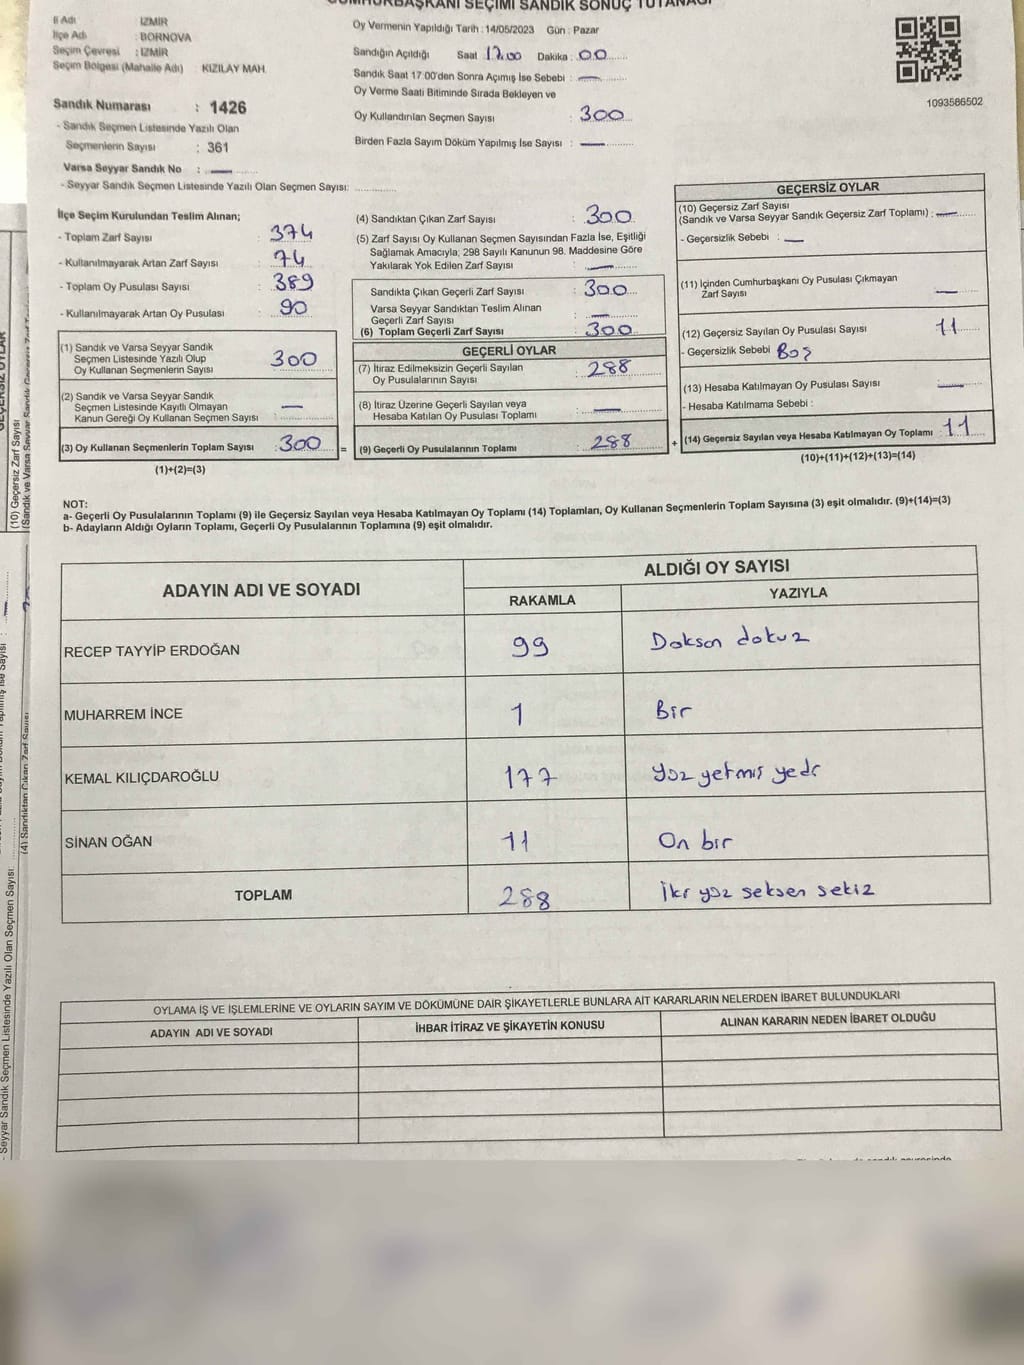 CUMHURBAŞKANI SEÇİMİ SANDIK SONUÇ TUTANAĞI
İl Adı : İZMİR
İlçe Adı : BORNOVA
Seçim Çevresi : İZMİR
Seçim Bölgesi (Mahalle Adı) : KIZILAY MAH.
Sandık Numarası : 1426
- Sandık Seçmen Listesinde Yazılı Olan
Seçmenlerin Sayısı : 361
Varsa Seyyar Sandık No : —
- Seyyar Sandık Seçmen Listesinde Yazılı Olan Seçmen Sayısı: ............
Oy Vermenin Yapıldığı Tarih : 14/05/2023 Gün : Pazar
Sandığın Açıldığı Saat 17.00 Dakika : 00
Sandık Saat 17:00'den Sonra Açımış İse Sebebi : —
Oy Verme Saati Bitiminde Sırada Bekleyen ve
Oy Kullandırılan Seçmen Sayısı : 300
Birden Fazla Sayım Döküm Yapılmış İse Sayısı : —
1093586502
İlçe Seçim Kurulundan Teslim Alınan;
- Toplam Zarf Sayısı : 374
- Kullanılmayarak Artan Zarf Sayısı : 74
- Toplam Oy Pusulası Sayısı : 389
- Kullanılmayarak Artan Oy Pusulası : 90
(1) Sandık ve Varsa Seyyar Sandık
Seçmen Listesinde Yazılı Olup
Oy Kullanan Seçmenlerin Sayısı 300
(2) Sandık ve Varsa Seyyar Sandık
Seçmen Listesinde Kayıtlı Olmayan
Kanun Gereği Oy Kullanan Seçmen Sayısı : —
(3) Oy Kullanan Seçmenlerin Toplam Sayısı : 300 =
(1)+(2)=(3)
(4) Sandıktan Çıkan Zarf Sayısı : 300
(5) Zarf Sayısı Oy Kullanan Seçmen Sayısından Fazla İse, Eşitliği
Sağlamak Amacıyla; 298 Sayılı Kanunun 98. Maddesine Göre
Yakılarak Yok Edilen Zarf Sayısı : —
Sandıkta Çıkan Geçerli Zarf Sayısı : 300
Varsa Seyyar Sandıktan Teslim Alınan
Geçerli Zarf Sayısı : —
(6) Toplam Geçerli Zarf Sayısı : 300
GEÇERLİ OYLAR
(7) İtiraz Edilmeksizin Geçerli Sayılan
Oy Pusulalarının Sayısı : 288
(8) İtiraz Üzerine Geçerli Sayılan veya
Hesaba Katılan Oy Pusulası Toplamı : —
(9) Geçerli Oy Pusulalarının Toplamı : 288 +
GEÇERSİZ OYLAR
(10) Geçersiz Zarf Sayısı
(Sandık ve Varsa Seyyar Sandık Geçersiz Zarf Toplamı) : —
- Geçersizlik Sebebi : —
(11) İçinden Cumhurbaşkanı Oy Pusulası Çıkmayan
Zarf Sayısı —
(12) Geçersiz Sayılan Oy Pusulası Sayısı 11
- Geçersizlik Sebebi Boş
(13) Hesaba Katılmayan Oy Pusulası Sayısı —
- Hesaba Katılmama Sebebi :
(14) Geçersiz Sayılan veya Hesaba Katılmayan Oy Toplamı : 11
(10)+(11)+(12)+(13)=(14)
NOT:
a- Geçerli Oy Pusulalarının Toplamı (9) ile Geçersiz Sayılan veya Hesaba Katılmayan Oy Toplamı (14) Toplamları, Oy Kullanan Seçmenlerin Toplam Sayısına (3) eşit olmalıdır. (9)+(14)=(3)
b- Adayların Aldığı Oyların Toplamı, Geçerli Oy Pusulalarının Toplamına (9) eşit olmalıdır.
ADAYIN ADI VE SOYADI
ALDIĞI OY SAYISI
RAKAMLA YAZIYLA
RECEP TAYYİP ERDOĞAN 99 Doksan dokuz
MUHARREM İNCE 1 Bir
KEMAL KILIÇDAROĞLU 177 Yüz yetmiş yedi
SİNAN OĞAN 11 On bir
TOPLAM 288 İki yüz seksen sekiz
OYLAMA İŞ VE İŞLEMLERİNE VE OYLARIN SAYIM VE DÖKÜMÜNE DAİR ŞİKAYETLERLE BUNLARA AİT KARARLARIN NELERDEN İBARET BULUNDUKLARI
ADAYIN ADI VE SOYADI İHBAR İTİRAZ VE ŞİKAYETİN KONUSU ALINAN KARARIN NEDEN İBARET OLDUĞU
GEÇERSİZ OYLAR
(10) Geçersiz Zarf Sayısı
(4) Sandıktan Çıkan Zarf Sayısı
- Seyyar Sandık Seçmen Listesinde Yazılı Olan Seçmen Sayısı: